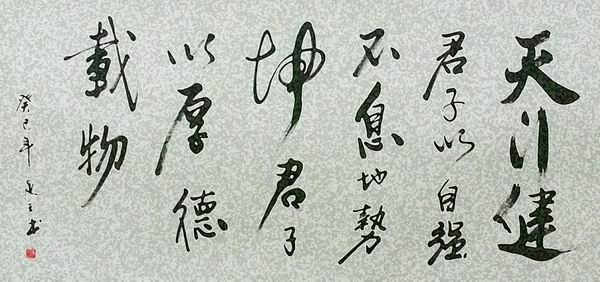 天行健
君子以自强
不息地勢
坤君子
以厚德
載物
癸巳年 书